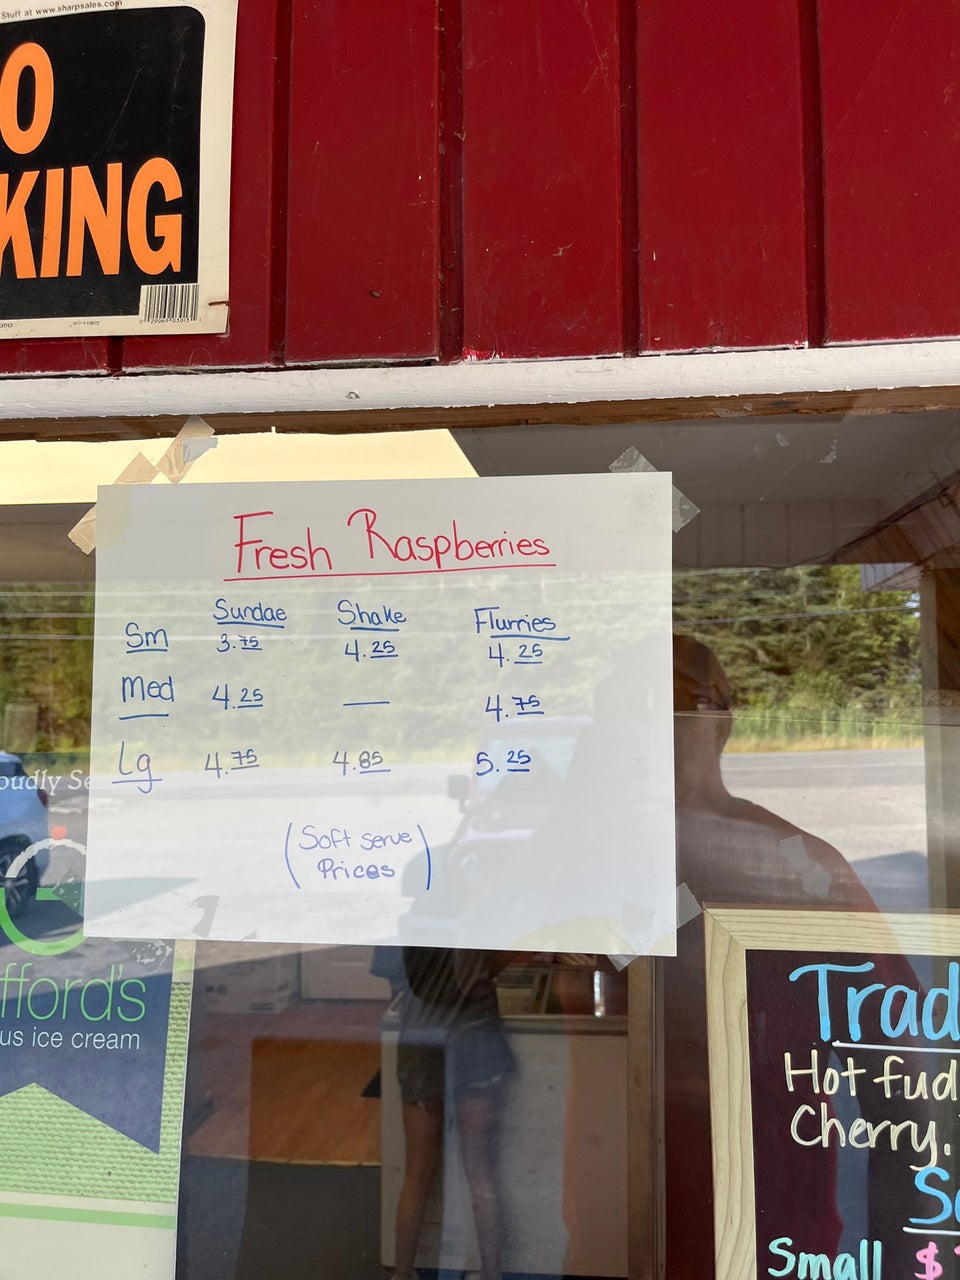 Stuff at www.sharpsales.com
O
KING
Fresh Raspberries
Sundae Shake Flurries
Sm 3.75 4.25 4.25
Med 4.25 — 4.75
Lg 4.75 4.85 5.25
(Soft serve
Prices)
oudly Se
fford's
us ice cream
Trad
Hot fud
Cherry.
S
Small $